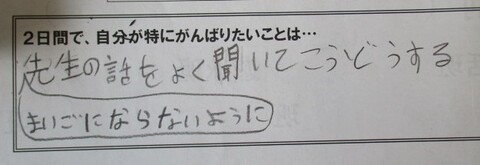 2日間で、自分が特にがんばりたいことは…
先生の話をよく聞いてこうどうする
まいごにならないように